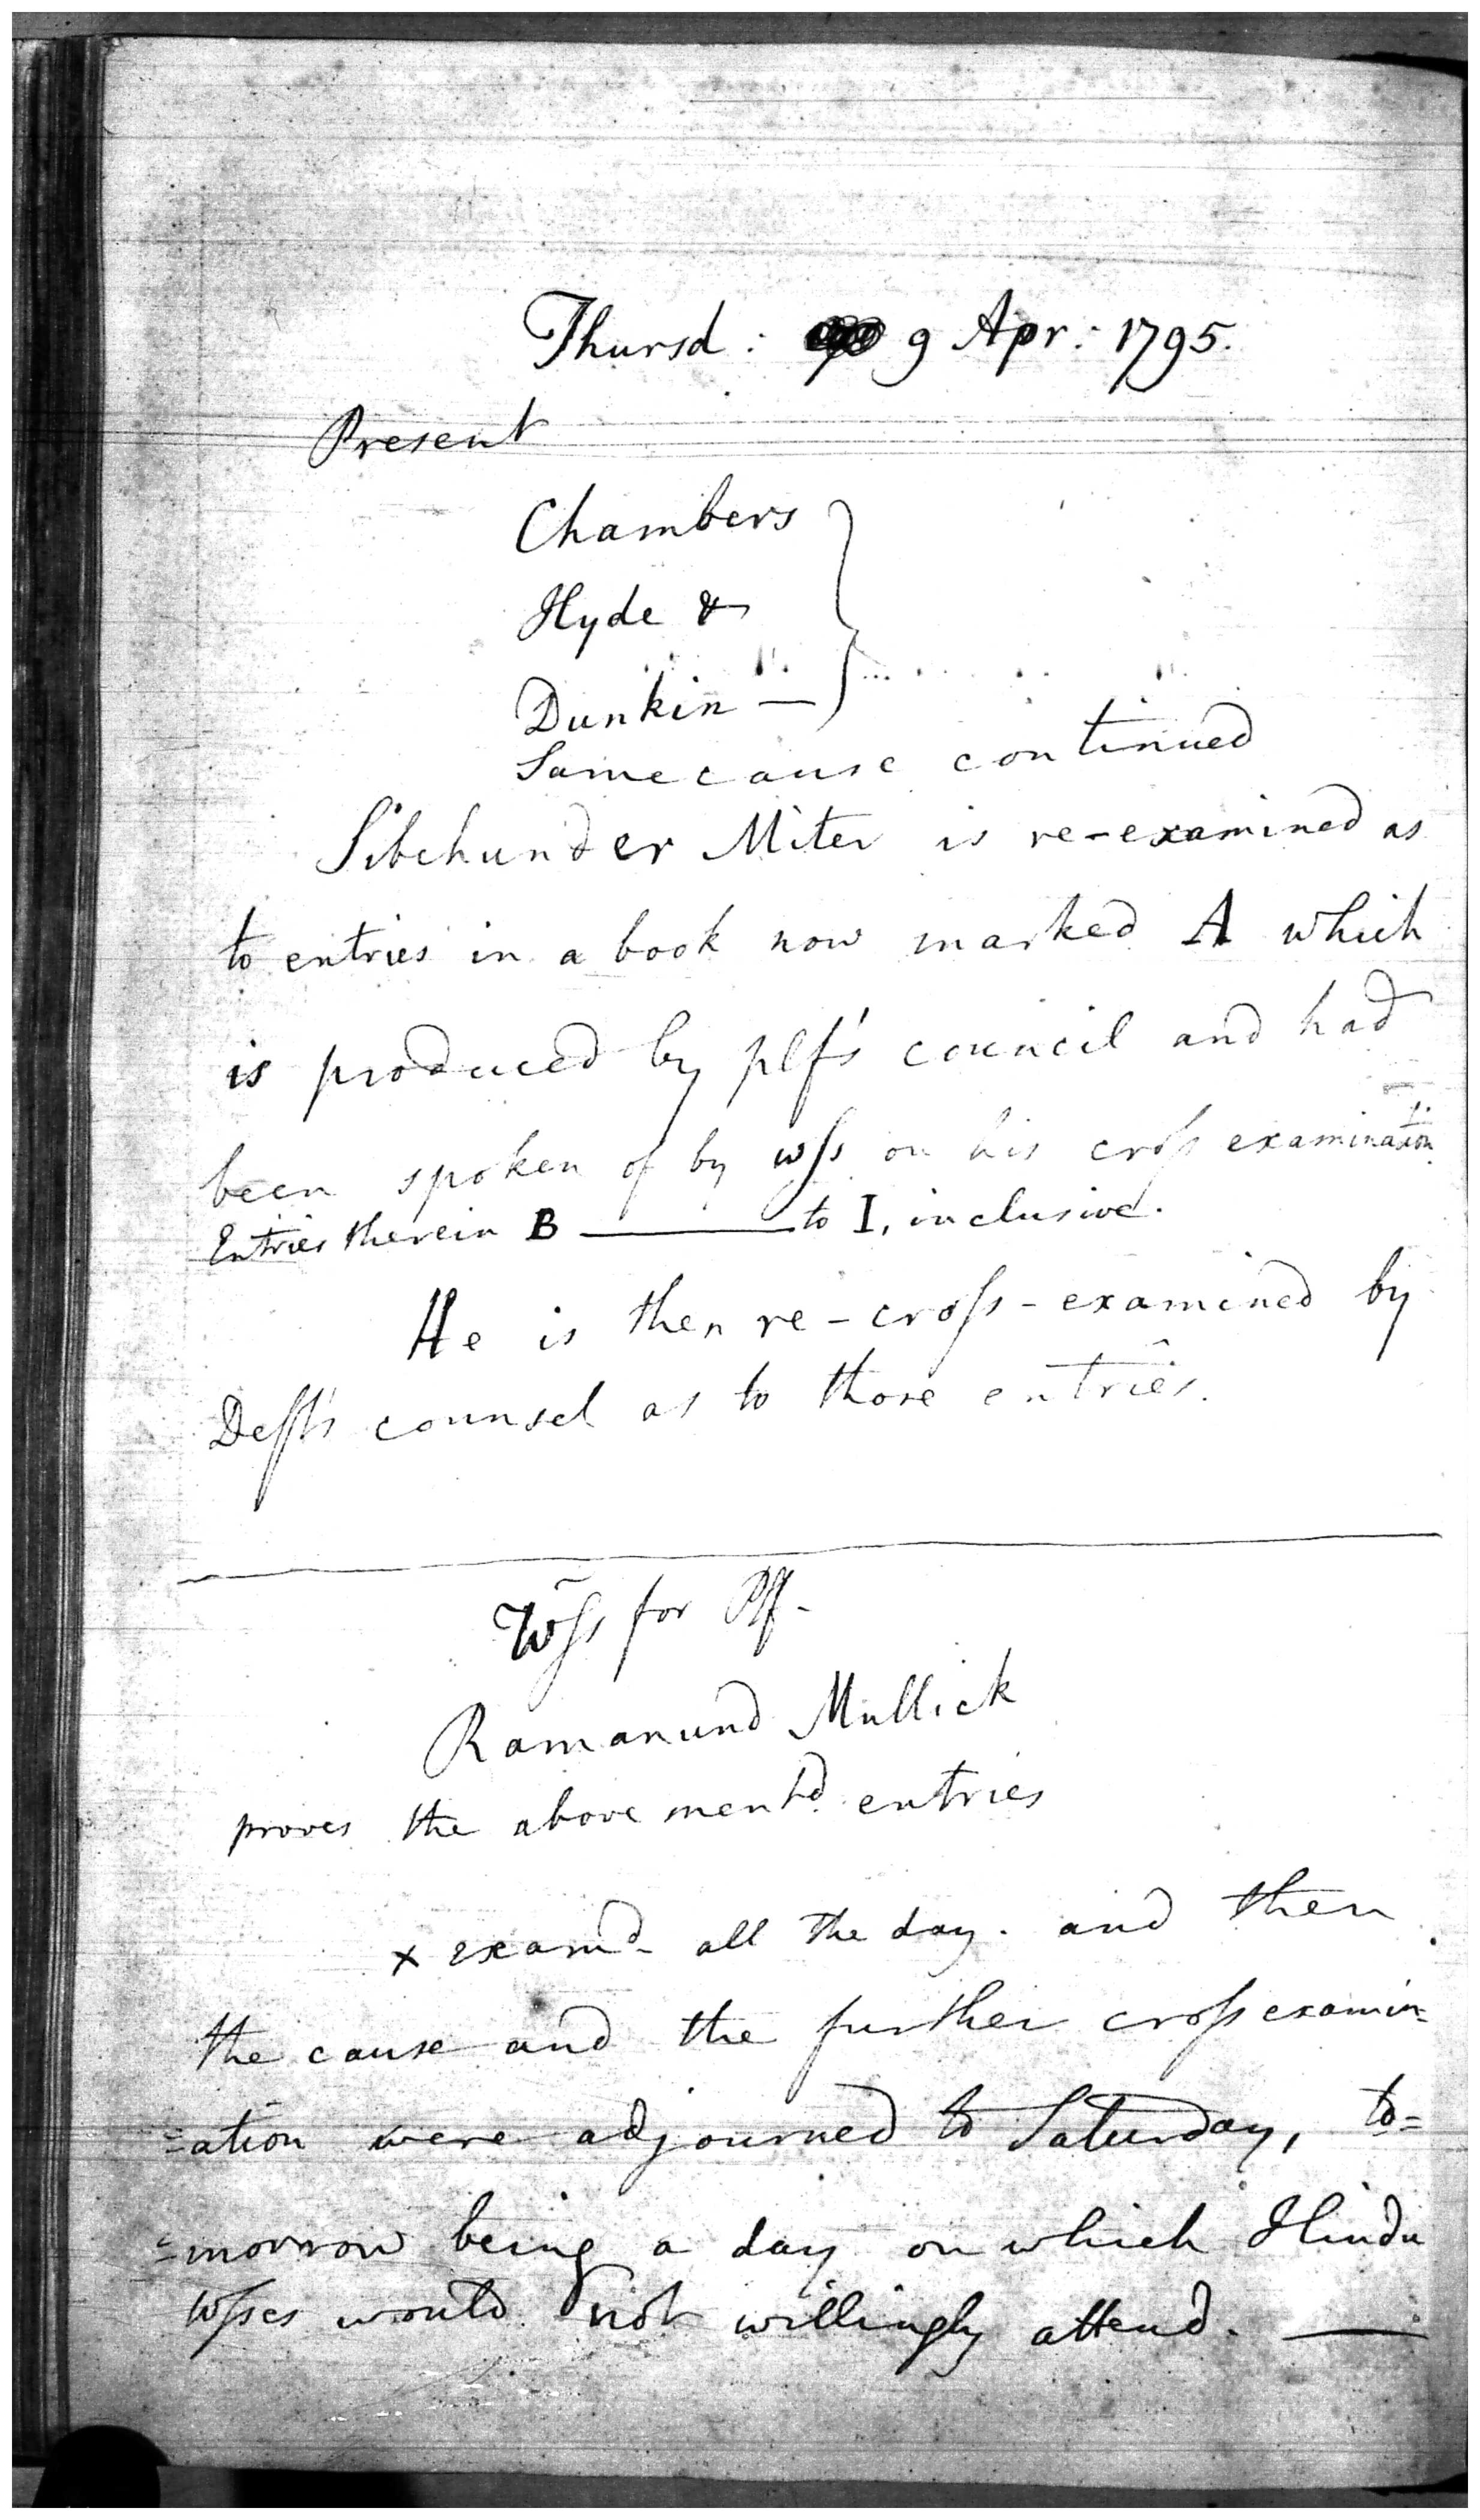 Thursd: 9 Apr: 1795.
Present
Chambers
Hyde &
Dunkin —
Same cause continued
Sibchunder Miter is re-examined as
to entries in a book now marked A which
is produced by plf's council and had
been spoken of by wss on his cross examination.
Entries therein B ——— to I, inclusive.
He is then re-cross-examined by
Deft's counsel as to those entries.
Wss for Plf-
Ramanund Mullick
proves the above mentd. entries
x examd- all the day. and then
the cause and the further cross examin=
=ation were adjourned to Saturday, to=
=morrow being a day on which Hindu
wsses would not willingly attend. —